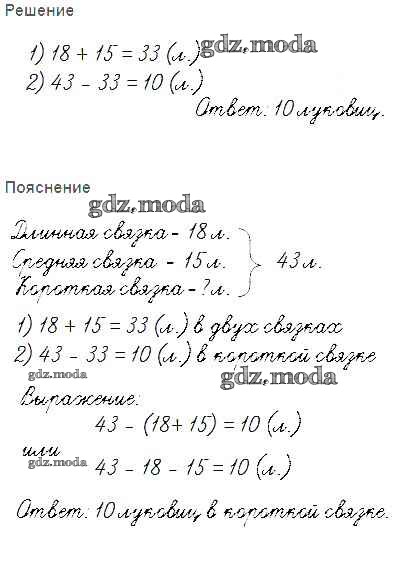 Решение
1) 18 + 15 = 33 (л.) gdz.moda
2) 43 - 33 = 10 (л.)
Ответ: 10 луковиц.
Пояснение
gdz.moda
Длинная связка - 18 л.
Средняя связка - 15 л. } 43 л.
Короткая связка - ? л.
1) 18 + 15 = 33 (л.) в двух связках
2) 43 - 33 = 10 (л.) в короткой связке
gdz.moda gdz.moda
Выражение:
43 - (18+ 15) = 10 (л.)
или
gdz.moda
43 - 18 - 15 = 10 (л.)
Ответ: 10 луковиц в короткой связке.